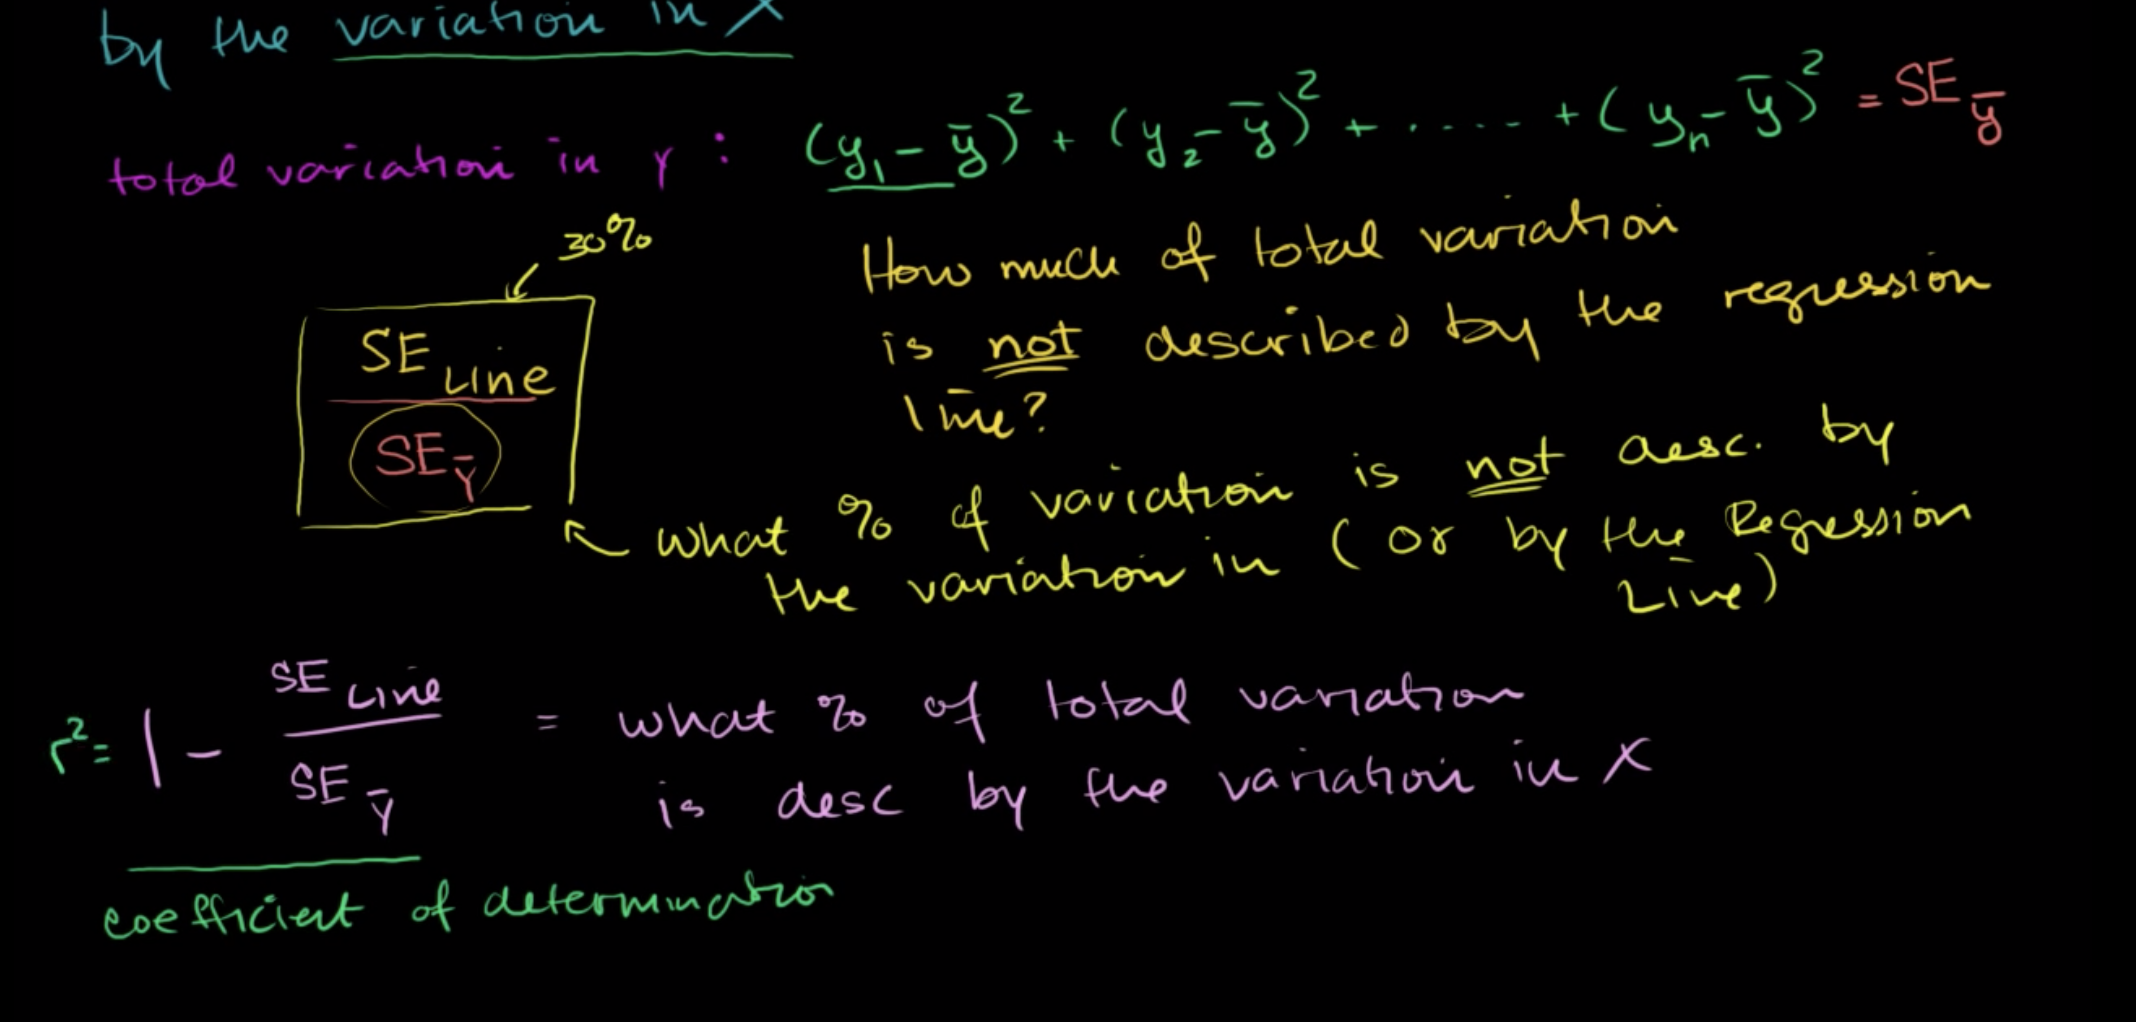 by the variation in X
total variation in Y : (y₁ - ȳ)² + (y₂ - ȳ)² + ..... + (yₙ - ȳ)² = SE ȳ
30%
How much of total variation
is not described by the regression
line?
SE Line
SE Ȳ
what % of variation is not desc. by
the variation in (or by the Regression
Line)
r² = 1 - SE Line / SE Ȳ = what % of total variation
is desc by the variation in X
coefficient of determination